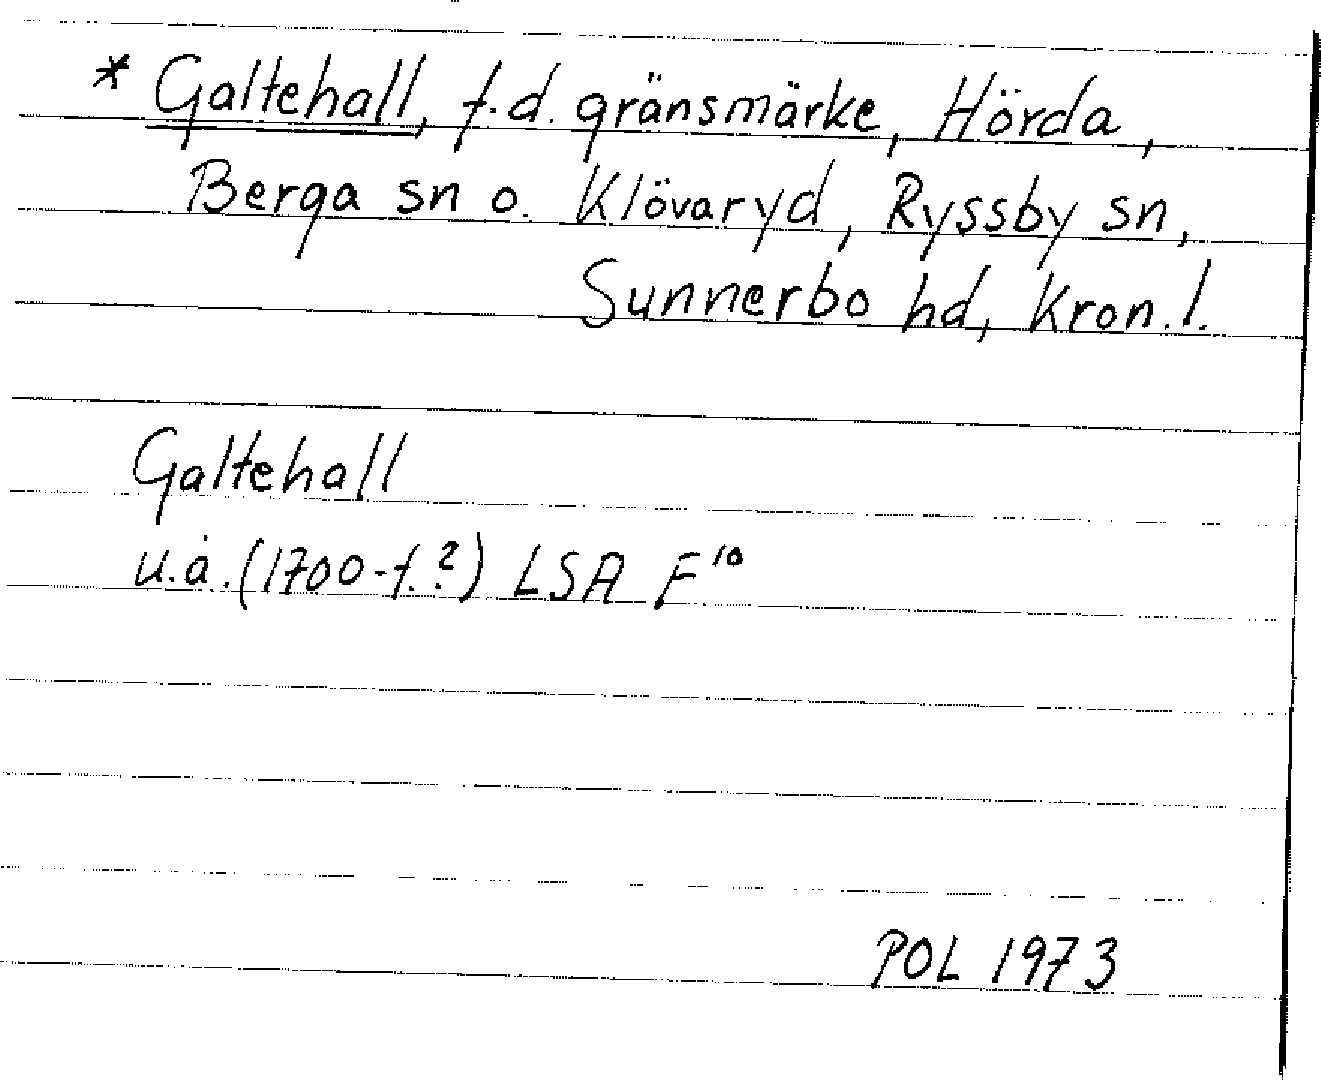 * Galtehall, f.d. gränsmärke, Hörda,
Berga sn o. Klövaryd, Ryssby sn,
Sunnerbo hd, Kron.l.
Galtehall
u.å. (1700-t.?) LSA F¹⁰
POL 1973